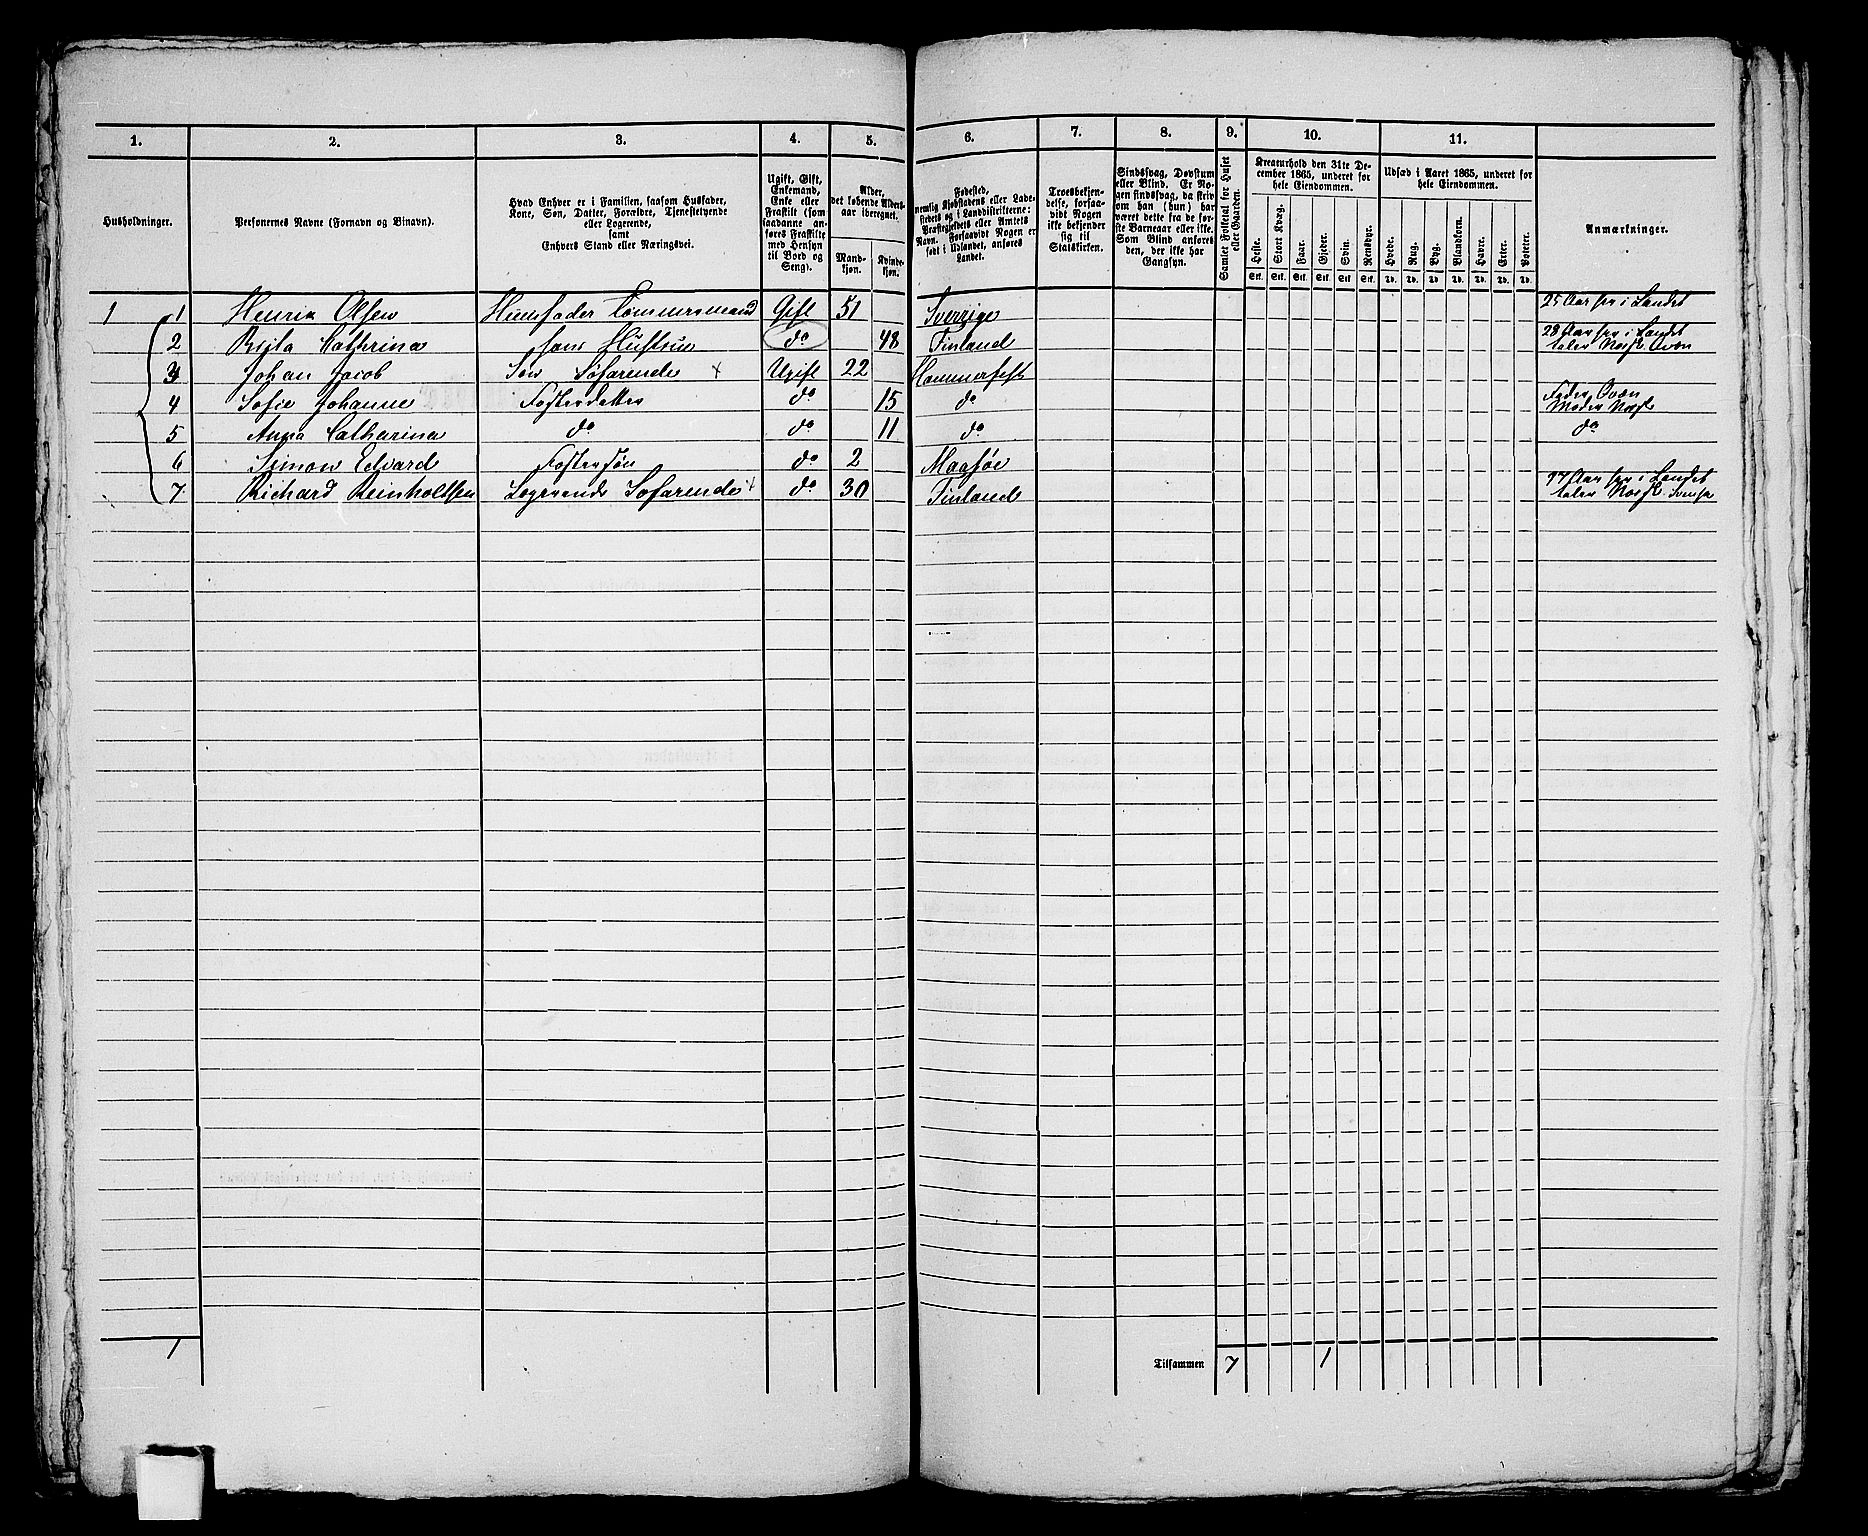 1. 2. 3. 4. 5. 6. 7. 8. 9. 10. 11.
Husholdninger.
Personernes Navne (Fornavn og Binavn).
Hvad Enhver er i Familien, saasom Husfader,
Kone, Søn, Datter, Forældre, Tjenestetyende
eller Logerende,
samt
Enhvers Stand eller Næringsvei.
Ugift, Gift,
Enkemand,
Enke eller
Fraskilt (som
saadanne an-
føres Fraskilte
med Hensyn
til Bord og
Seng).
Alder,
det løbende Alders-
aar iberegnet.
Mand-
kjøn.
Kvinde-
kjøn.
Fødested,
nemlig Kjøbstadens eller Lade-
stedets og i Landdistrikterne:
Præstegjeldets eller Amtets
Navn. Forsaavidt Nogen er
født i Udlandet, anføres
Landet.
Troesbekjen-
delse, forsaa-
vidt Nogen
ikke bekjender
sig til
Statskirken.
Sindssvag, Døvstum
eller Blind. Er No-
gen sindssvag, da skriv
om han (hun) har
været dette fra de før-
ste Barneaar eller ikke.
Som Blind anføres
den, der ikke har
Gangsyn.
Samlet Folketal for Huset
eller Gaarden.
Kreaturhold den 31te De-
cember 1865, underet for
hele Eiendommen.
Heste. Stort Kvæg. Faar. Gjeder. Svin. Rensdyr.
Stk. Stk. Stk. Stk. Stk. Stk.
Udsæd i Aaret 1865, underet for
hele Eiendommen.
Hvede. Rug. Byg. Blandkorn. Havre. Erter. Poteter.
Td. Td. Td. Td. Td. Td. Td.
Anmærkninger.
1 1 Henrik Olsen Huusfader Tømmermand Gift 51 Sverrige 25 Aar her i Landet
2 Brita Cathrina hans Hustru do 48 Finland 28 Aar her i Landet
taler Norsk Qvæn
3 Johan Jacob Søn Søfarende + Ugift 22 Hammerfest
4 Sofie Johanne Fosterdatter do 15 do Fader Qvæn
Moder Norsk
5 Anna Catharina do do 11 do do
6 Simon Edvard Fostersøn do 2 Maasøe
7 Richard Reinholtsen Logerende Søfarende + do 30 Finland 17 Aar her i Landet
taler Norsk Svensk
1 Tilsammen 7 1